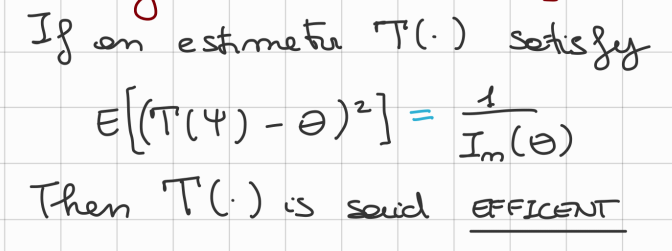 If an estimator T(·) satisfy
E[(T(Ψ) - θ)²] = 1/Iₘ(θ)
Then T(·) is said EFFICENT